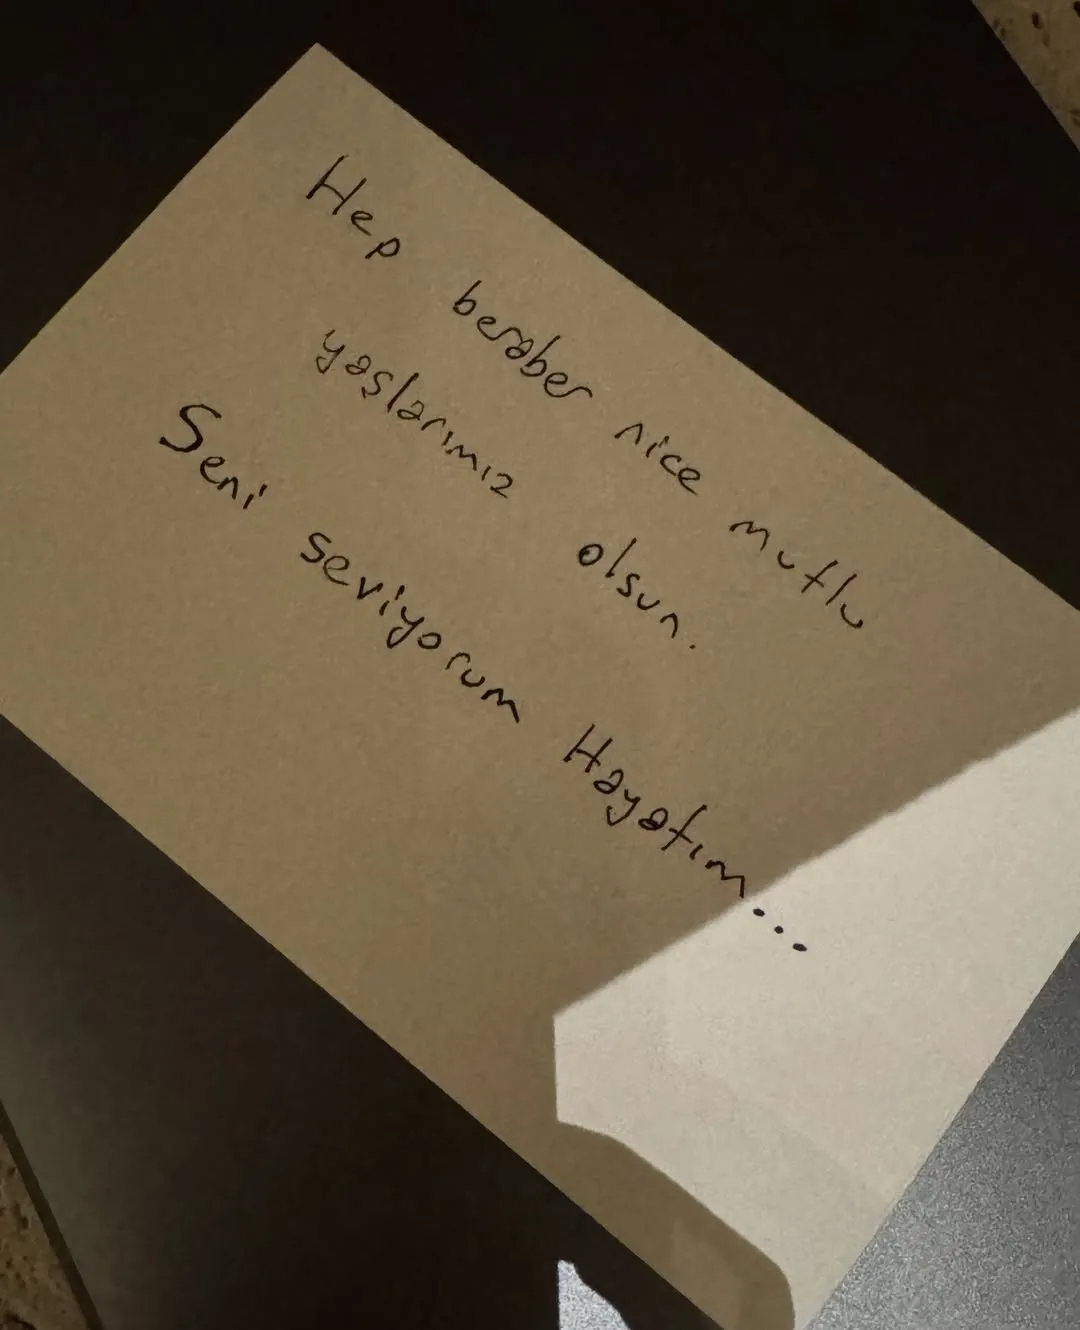 Hep beraber nice mutlu
yaşlarımız olsun.
Seni seviyorum Hayatım...